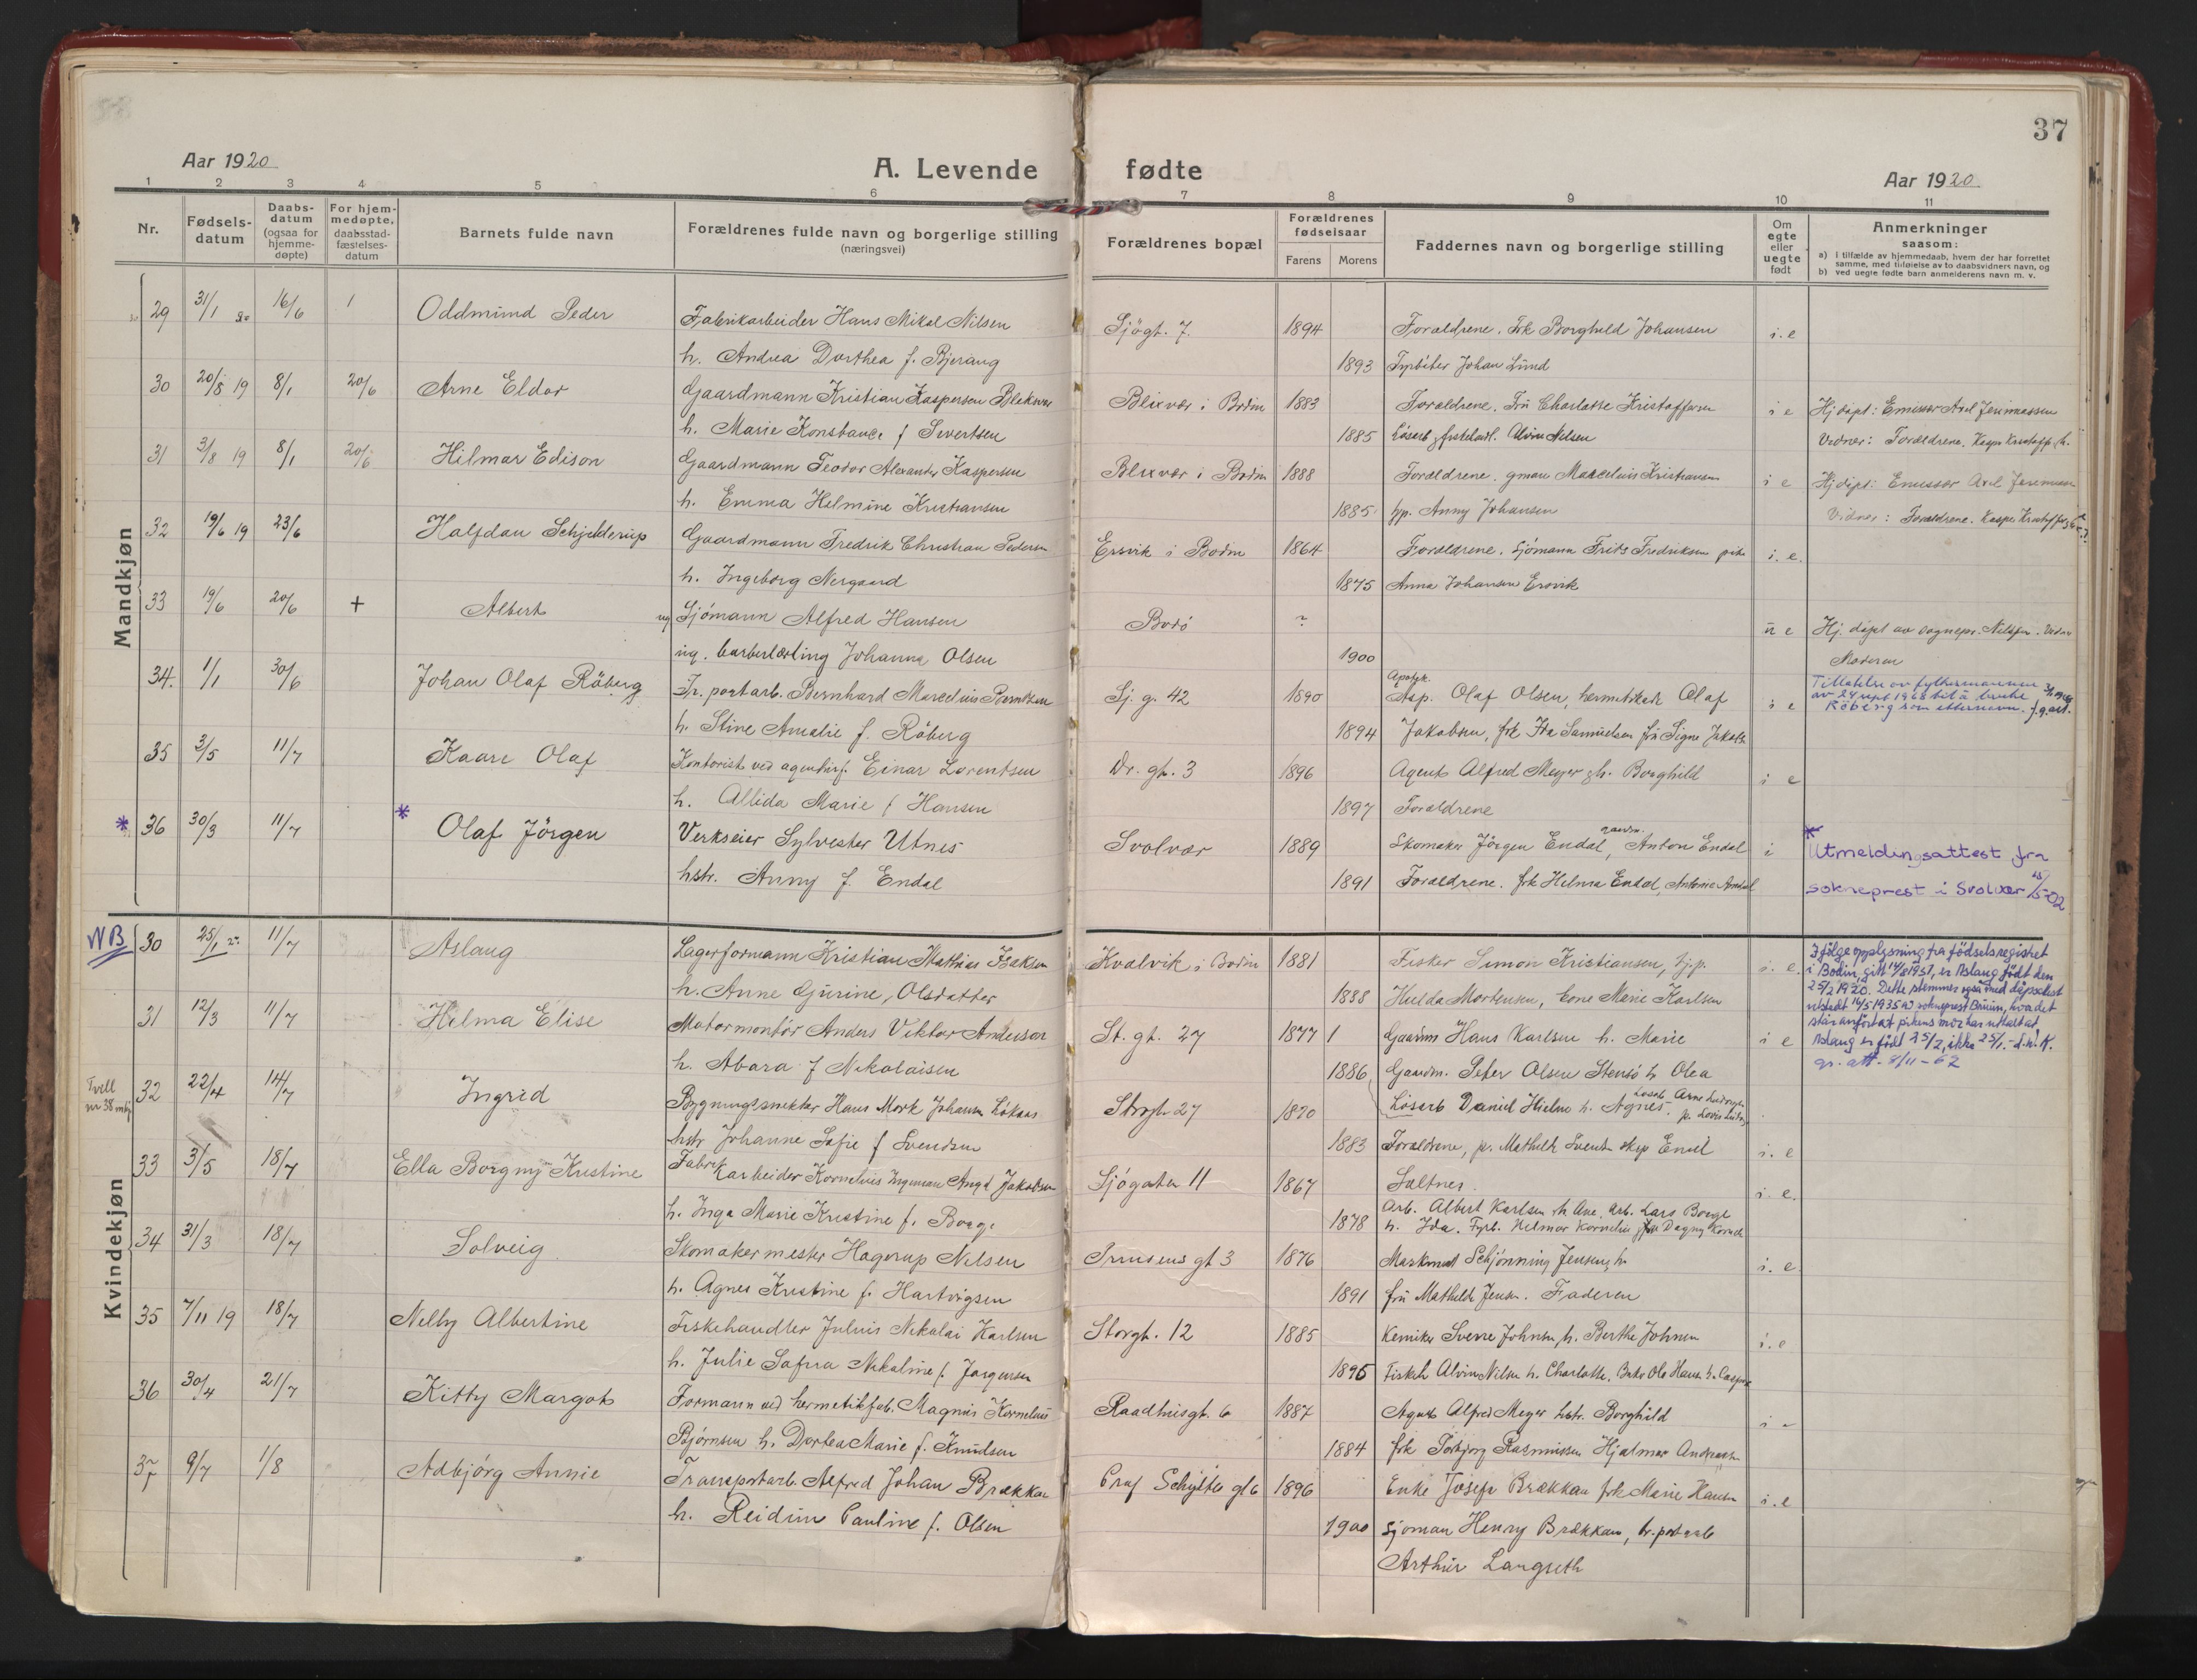 37
Aar 1920
A. Levende fødte
Aar 1920
1 2 3 4 5 6 7 8 9 10 11
Nr.
Fødsels-
datum
Daabs-
datum
(ogsaa for
hjemme-
døpte)
For hjem-
medøpte,
daabsstad-
fæstelses-
datum
Barnets fulde navn
Forældrenes fulde navn og borgerlige stilling
(næringsvei)
Forældrenes bopæl
Forældrenes
fødselsaar
Farens Morens
Faddernes navn og borgerlige stilling
Om
egte
eller
uegte
født
Anmerkninger
saasom:
a) i tilfælde av hjemmedaab, hvem der har forrettet
samme, med tilføielse av to daabsvidners navn, og
b) ved uegte fødte barn anmelderens navn m. v.
Mandkjøn
29 31/1 20 16/6 1 Oddmund Peder Fabrikarbeider Hans Mikal Nilsen Sjøgt. 7. 1894 Forældrene. Frk Borghild Johansen i. e
h. Andrea Dorthea f. Bjerang 1893 Fyrbøter Johan Lund
30 20/8 19 8/1 20/6 Arne Eldar Gaardmann Kristian Kaspersen Bliksvær Blixvær i Bodin 1883 Forældrene. Fru Charlotte Kristoffersen i e Hj.døpt: Emissær Axel Jeremiassen
h. Marie Konstance f Sivertsen 1885 Løsarb Alvin Nilsen Vidner: Forældrene. Kasper Kristoffs. h.
31 3/8 19 8/1 20/6 Hilmar Edison Gaardmann Teodor Alexander Kaspersen Blixvær i Bodin 1888 Forældrene. gman Marcelius Kristiansen i e Hj.døpt: Emissær Axel Jeremiassen
h. Emma Helmine Kristiansen 1885 hp. Anny Johansen Vidner: Forældrene. Kasper Kristoffs.
32 19/6 19 23/6 Halfdan Schjelderup Gaardmann Fredrik Christian Pedersen Ersvik i Bodin 1864 Forældrene. Sjømann Frits Fredriksen pike i. e.
h. Ingeborg Nergaard 1875 Anna Johansen Ersvik
33 19/6 20/6 + Albert ug Sjømann Alfred Hansen Bodø ? u e Hj. døpt av sognepr. Nilssen. Vidner
ug. barberlærling Johanna Olsen 1900 Moderen
34. 1/1 30/6 Johan Olaf Röberg Tr.portarb. Bernhard Marcelius Berntsen Sj. g. 42 1890 Apotek. Asp. Olaf Olsen, hermetikarb Olaf i e Tillatelse av fylkesmannen
av 24 sept 1968 til å bruke
Röberg som etternavn.
h. Stine Amalie f. Röberg 1894 Jakobsen, frk Ida Samuelsen fru Signe Jakobs
35 3/5 11/7 Kaare Olaf Kontorist ved agenturf. Einar Lorentsen Dr. gt. 3 1896 Agent Alfred Meyer h. Borghild i e
h. Allida Marie f Hansen 1897 Forældrene
* 36 30/3 11/7 * Olaf Jörgen Verkseier Sylvester Utnes Svolvær 1889 Skomaker Jörgen Endal, gaardm. Anton Endal i * Utmeldingsattest fra
hstr. Anny f. Endal 1891 Forældrene. frk Helma Endal, Antonie Endal sokneprest i Svolvær 15/5-02
Kvindekjøn
NB 30 25/1 20 11/7 Aslaug Lagerformann Kristian Mathias Isaksen Kvalvik i Bodin 1881 Fisker Simon Kristiansen, hj.p. i. e.
h. Anne Gurine, Olsdatter 1888 Hulda Mortensen, Enne Marie Karlsen
Ifølge opplysning fra födselsregistret
i Bodin, gitt 14/8 1951, er Aslaug født den
25/2 1920. Dette stemmer også med dåpsattest
utstedt 16/5 1935 av sokneprest Bauun, hvor det
står anført at pikens mor har uttalt at
Aslaug er född 25/2, ikke 25/1. - d.w.K.
gr. att. 8/11-62
31 12/3 11/7 Helma Elise Motormontör Anders Viktor Anderson St. gt. 27 1877 Gaardm Hans Karlsen h. Marie i e
h. Abara f Nikolaisen 1886 Gaardm. Peter Olsen Stensö h Olea
Tvill
nr 38 mkj 32 22/4 14/7 Ingrid Bygningssnekker Hans Mork Johansen Storgt 27 1870 Løsarb Daniel Hielm h. Agnes. Løsarb Arne
hstr Johanne Sofie f Svendsen 1883 Forældrene, pr. Mathilde Svends. skip Emil i. e
33 3/5 18/7 Ella Borgny Kristine Fabrikarbeider Kornelius Ingeman Angel Jakobsen Sjøgaten 11 1867 Saltnes. i. e.
h. Inga Marie Kristine f. Boege 1878 Arb. Albert Karlsen h Ane, Arb. Lars Boege
h. Ida. Fyrb. Helmer Kornelius frk Dagny Kornels
34 31/3 18/7 Solveig Skomakermester Hagerup Nilsen Prinsens gt 3 1876 Maskinist Schjønning Jensen h. i. e.
h. Agnes Kristine f. Hartvigsen 1891 fru Mathilde Jensen. Faderen
35 7/11 19 18/7 Nelly Albertine Fiskehandler Julius Nikolai Karlsen Storgt. 12 1885 Kemiker Sverre Johnsen, h. Berthe Johnsen i. e
h. Julie Safira Nikoline f. Jørgensen 1895 Fiskeh Alvin Nilsen h. Charlotte. Ole Hansen
36 30/4 21/7 Kitty Margot Formann ved hermetikfab. Magnus Kornelius Raadhusgt. 6 1887 Agent Alfred Meyer hstr. Borghild i e
Bjørnsen h. Dortea Marie f. Knudsen 1884 frk Torbjørg Rasmussen Hjalmar Andreassen
37 9/7 1/8 Adbjörg Annie Transportarb. Alfred Johan Brækkan Prof Schyttes gt 6 1896 Enke Josefa Brækkan frk Marie Hansen i. e
h. Reidun Pauline f. Olsen 1900 Sjøman Henry Brækkan, tr.portarb
Arthur Langseth